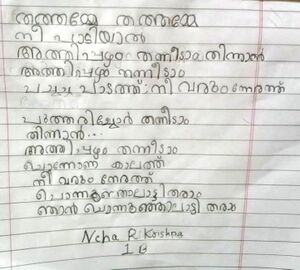 തത്തമ്മേ തത്തമ്മേ
നീ പാടിയാൽ
അത്തിപ്പഴം തന്നീടാം തിന്നാൻ
അത്തിപ്പഴം തന്നീടാം
പച്ച പാടത്ത് നീ വരുംനേരത്ത്
പുത്തരിച്ചോർ തന്നീടാം
തിന്നാൻ...
അത്തിപ്പഴം തന്നീടാം
പൊന്നോണ കാലത്ത്
നീ വരുംനേരത്ത്
പൊന്നുഞ്ഞാലാട്ടിതരാം
ഞാൻ പൊന്നുഞ്ഞാലാട്ടി തരാം
Neha R Krishna
1 B